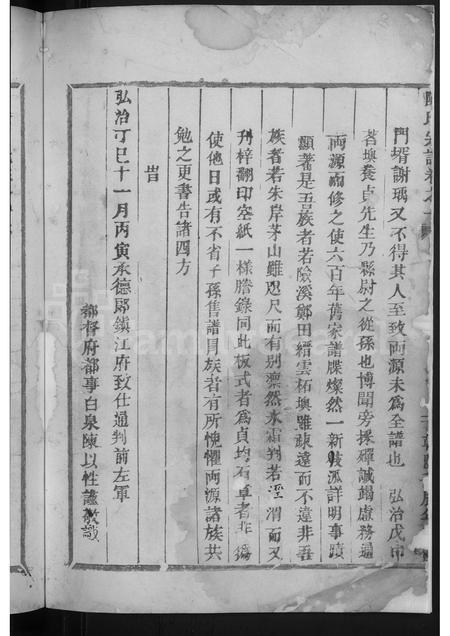 陳氏宗譜卷之一
門壻謝瑀又不得其人至致両源未爲全譜也 弘治戊申
茗㙪養貞先生乃縣尉之從孫也博聞旁採殫誠竭慮務通
両源而修之使六百年舊家譜牒燦然一新枝派詳明事蹟
顯著是吾族者若陰溪鄭田縉雲柘㙪雖疎遠而不遺非吾
族者若朱岸茅山雖咫尺而有别凛然氷霜判若涇渭而又
刋梓翻印空紙一様謄錄同此板式者爲貞均石卓者非偽
使他日或有不省子孫售譜冐族者有所愧懼両源諸族共
勉之更書告諸四方
旹
弘治丁巳十一月丙寅承德郎鎮江府致仕通判前左軍
都督府都事白泉陳以性謹